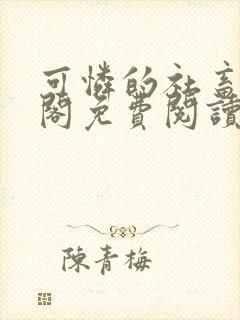 可憐的社畜
閣免費閱讀
陳青梅